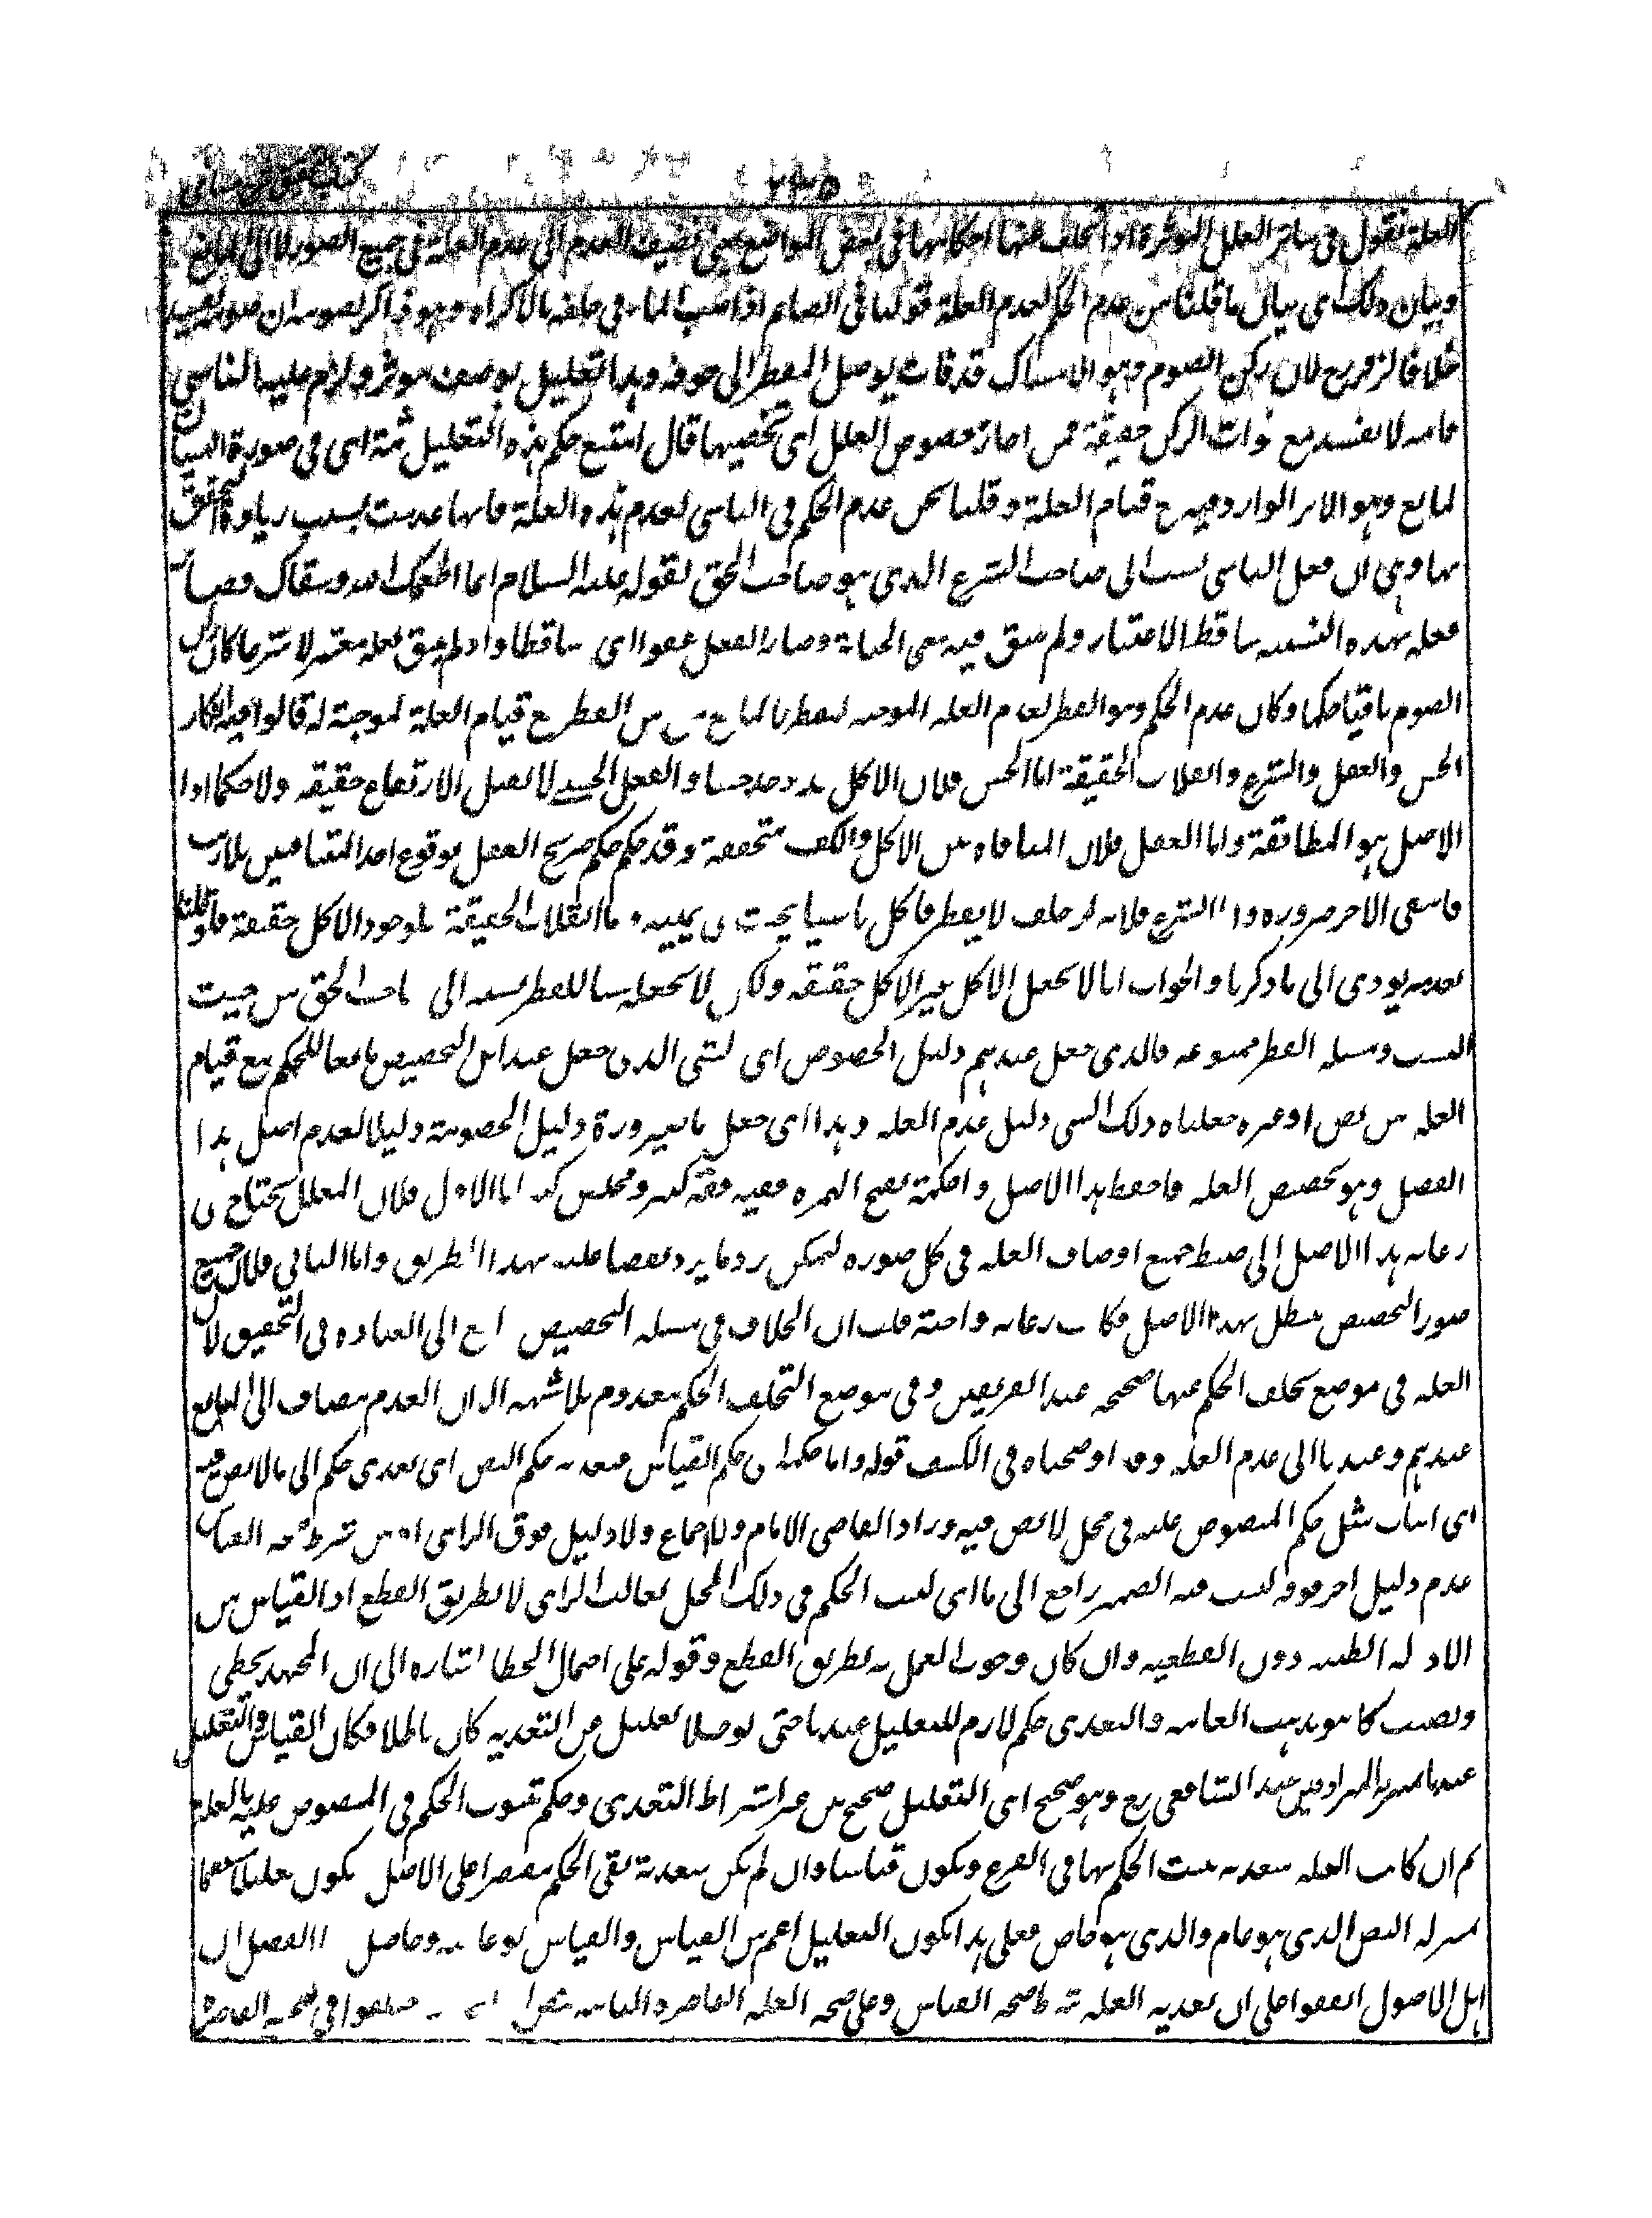 ٢٣٥
العلة نقول فى سائر العلل المؤثرة اذا تخلف عنها احكامها فى بعض المواضع يعنى نضيف العدم الى عدم العلة فى جميع الصور لا الى المانع
وبيان ذلك اى بيان ما قلنا من عدم الحكم لعدم العلة قولنا فى الصائم اذا صب الماء فى حلقه بالاكراه وهو ذاكر لصومه ان صومه يفسد
خلافا لزفر رح لان ركن الصوم وهو الامساك قد فات بوصول المفطر الى جوفه وهذا تعليل بوصف مؤثر ولزم عليه الناسى
فانه لا يفسد مع فوات الركن حقيقة فمن اجاز خصوص العلل اى تخصيصها قال امتنع حكم هذه التعليل ثمة اى فى صورة النسيان
لمانع وهو الاثر الوارد فيه مع قيام العلة وقلنا نحن عدم الحكم فى الناسى لعدم هذه العلة فانها عدمت بسبب زيادة التحق
بها وهى ان فعل الناسى نسب الى صاحب الشرع الذى هو صاحب الحق لقوله عليه السلام انما اطعمك الله وسقاك فصار
فعله بهذه النسبة ساقط الاعتبار ولم يبق فيه معنى الجناية وصار الفعل عفوا اى ساقطا واذا لم يبق فعله معتبرا شرعا كان ركن
الصوم باقيا حكما وكان عدم الحكم وهو الفطر لعدم العلة الموجبة للفطر لا لمانع من الفطر مع قيام العلة الموجبة له قالوا فيه انكار
الحس والعقل والشرع وانقلاب الحقيقة اما الحس فلان الاكل قد وجد حسا والفعل الحسى لا يقبل الارتفاع حقيقة ولا حكما اذا
الاصل هو المطابقة واما العقل فلان المنافاة بين الاكل والكف متحققة وقد حكم حكم صريح العقل بوقوع احد المتنافيين فلا ريب
فانتفى الاخر ضرورة واما الشرع فلانه لو حلف لا يفطر فاكل ناسيا يحنث فى يمينه واما انقلاب الحقيقة فلوجود الاكل حقيقة وما قلنا
بعدمه يودى الى ما ذكرنا والجواب انا لا نجعل الاكل غير الاكل حقيقة ولكن لا نجعله سببا للفطر لنسبته الى صاحب الحق من حيث
السبب ومسئلة الفطر ممنوعة فالذى جعل عندهم دليل الخصوص اى الشئ الذى جعل عند اهل التخصيص مانعا للحكم مع قيام
العلة من نص او غيره جعلناه ذلك الشئ دليل عدم العلة وهذا اى جعل ما صيروه دليل الخصوصية دليلا لعدم اصل هذا
الفصل وهو تخصيص العلة فاحفظ هذا الاصل واحكمه بفتح الهمزة ففيه فقه كثير ومخلص كبير اما الاول فلان المعلل يحتاج فى
رعاية هذا الاصل الى ضبط جميع اوصاف العلة فى كل صورة ليمكن رد ما يرد نقضا عليه بهذا الطريق واما الثانى فلان جميع
صور التخصيص يبطل بهذا الاصل فكانت رعايته واجبة قلت ان الخلاف فى مسئلة التخصيص راجع الى العبارة فى التحقيق لان
العلة فى موضع تخلف الحكم عنها صحيحة عند الفريقين وفى موضع التخلف الحكم معدوم بلا شبهة الا ان العدم مضاف الى المانع
عندهم وعندنا الى عدم العلة وقد اوضحناه فى الكشف قوله واما حكمه اى حكم القياس فتعدية حكم النص اى تعدى حكم الى ما لا نص فيه
اى اثبات مثل حكم المنصوص عليه فى محل لا نص فيه وزاد القاضى الامام ولا اجماع ولا دليل فوق الراى اذ من شرط صحة القياس
عدم دليل اخر فوقه ليثبت فيه الضمير راجع الى ما اى ليثبت الحكم فى ذلك المحل بغالب الراى لا بطريق القطع اذ القياس من
الادلة الظنية دون القطعية وان كان وجوب العمل به بطريق القطع وقوله على احتمال الخطا اشارة الى ان المجتهد يخطى
ويصيب كما هو مذهب العامة والتعدى حكم لازم للتعليل عندنا حتى لو خلا تعليل عن التعدية كان باطلا فكان القياس والتعليل
عندنا بمنزلة المرادفين عند الشافعى رح وهو صحيح اى التعليل صحيح من غير اشتراط التعدى وحكمه ثبوت الحكم فى المنصوص عليه بالعلة
ثم ان كانت العلة متعدية يثبت الحكم بها فى الفرع ويكون قياسا وان لم يكن متعدية بقى الحكم مقتصرا على الاصل يكون تعليلا مستقيما
بمنزلة النص الذى هو عام والذى هو خاص فعلى هذا يكون التعليل اعم من القياس والقياس نوعا منه وحاصل الفصل ان
اهل الاصول اتفقوا على ان تعدية العلة شرط صحة القياس وعلى صحة العلة القاصرة الثابتة بنص واختلفوا فى صحة القاصرة